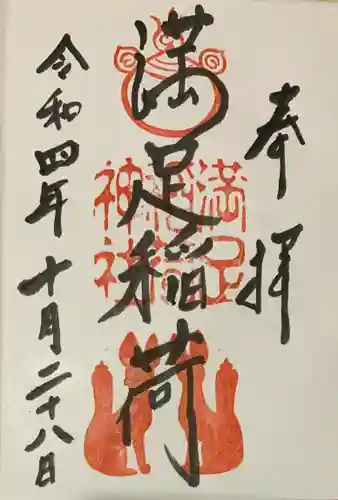 奉拝
満足稲荷
満足稲荷神社
令和四年十月二十八日